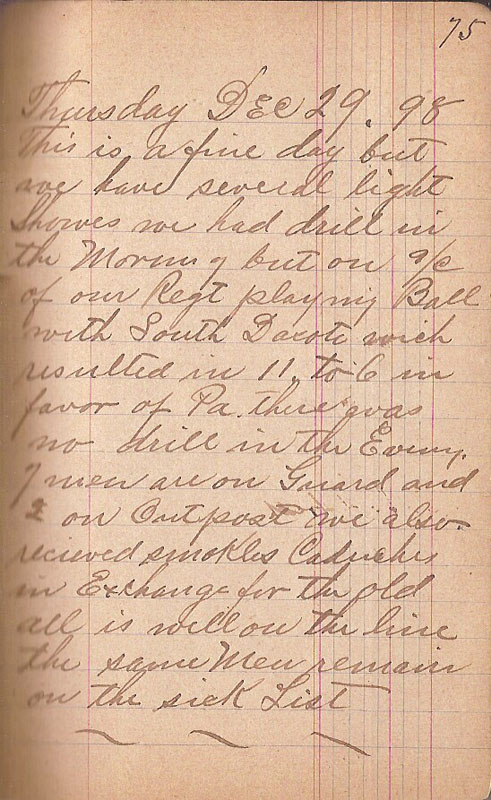 75
Thursday DEC 29. 98
This is a fine day but
we have several light
Showes we had drill in
the Morning but on a/c
of our Regt playing Ball
with South Dacota wich
resulted in 11 to 6 in
favor of Pa. there was
no drill in the Evening.
7 men are on Guard and
2 on Outpost we also
recieved smokles
in Exchange for the old
all is well on the line
the same Men remain
on the sick List